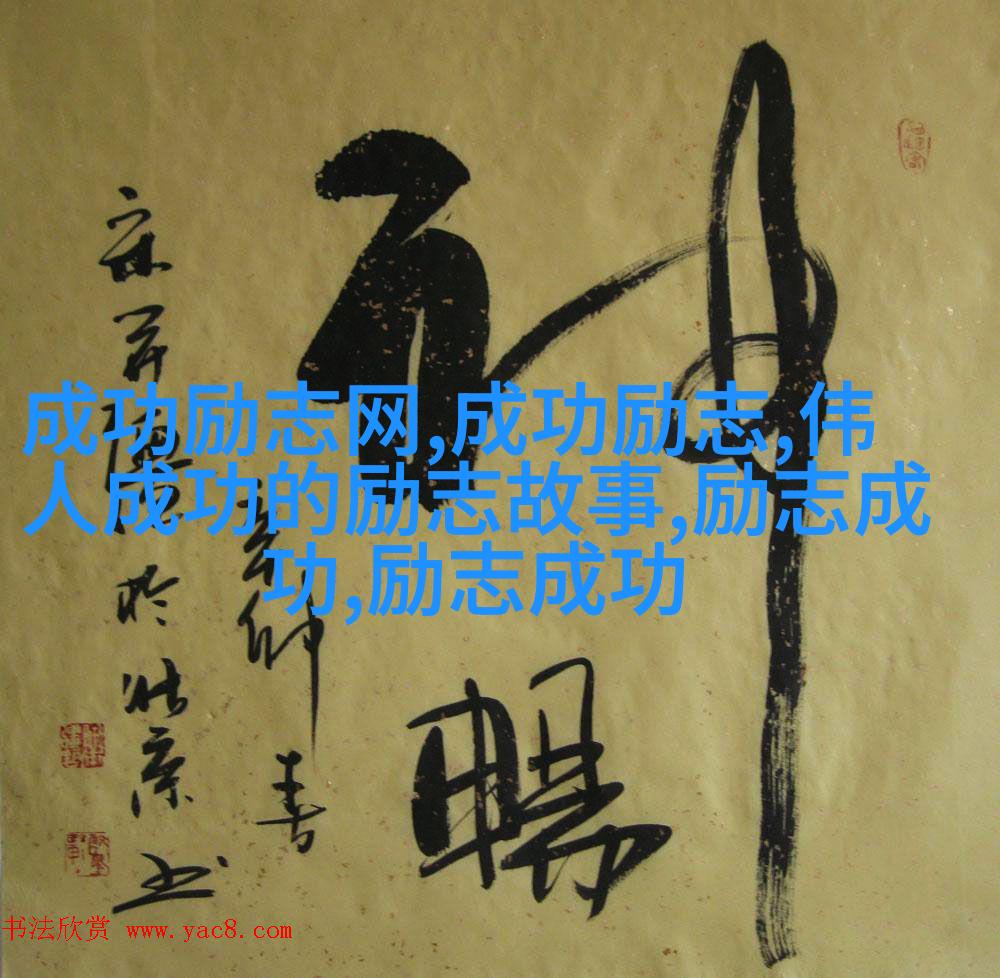 神
暢
辛卯春
於北京
书
成功励志网,成功励志,伟
人成功的励志故事,励志成
功,励志成功
书法欣赏 www.yac8.com